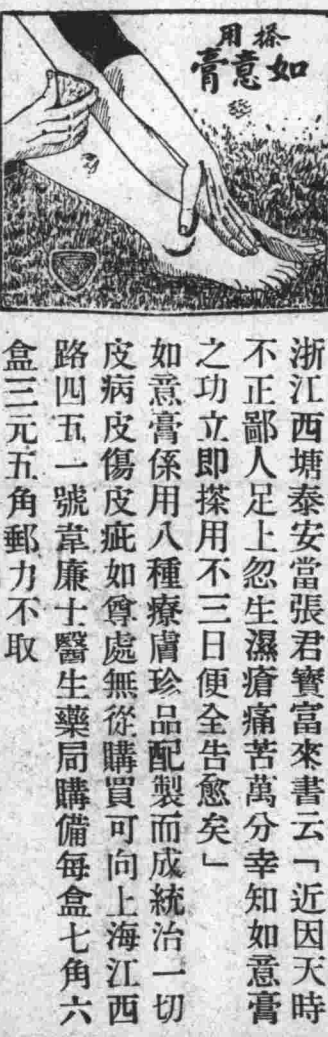 搽用
如意膏
浙江西塘泰安當張君寶富來書云「近因天時
不正鄙人足上忽生濕瘡痛苦萬分幸知如意膏
之功立即搽用不三日便全告愈矣」
如意膏係用八種療膚珍品配製而成統治一切
皮病皮傷皮疵如尊處無從購買可向上海江西
路四五一號韋廉士醫生藥局購備每盒七角六
盒三元五角郵力不取